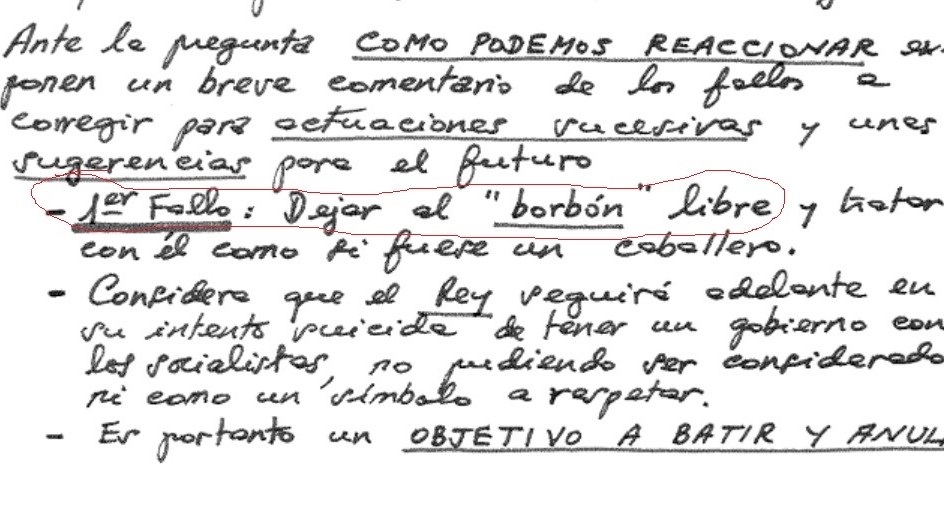 Ante la pregunta COMO PODEMOS REACCIONAR ex-
ponen un breve comentario de los fallos a
corregir para actuaciones sucesivas y unas
sugerencias para el futuro
- 1er Fallo: Dejar al "borbón" libre y tratar
con él como si fuese un caballero.
- Considera que el Rey seguirá adelante en
su intento suicida de tener un gobierno con
los socialistas, no pudiendo ser considerado
ni como un símbolo a respetar.
- Es portanto un OBJETIVO A BATIR Y ANUL